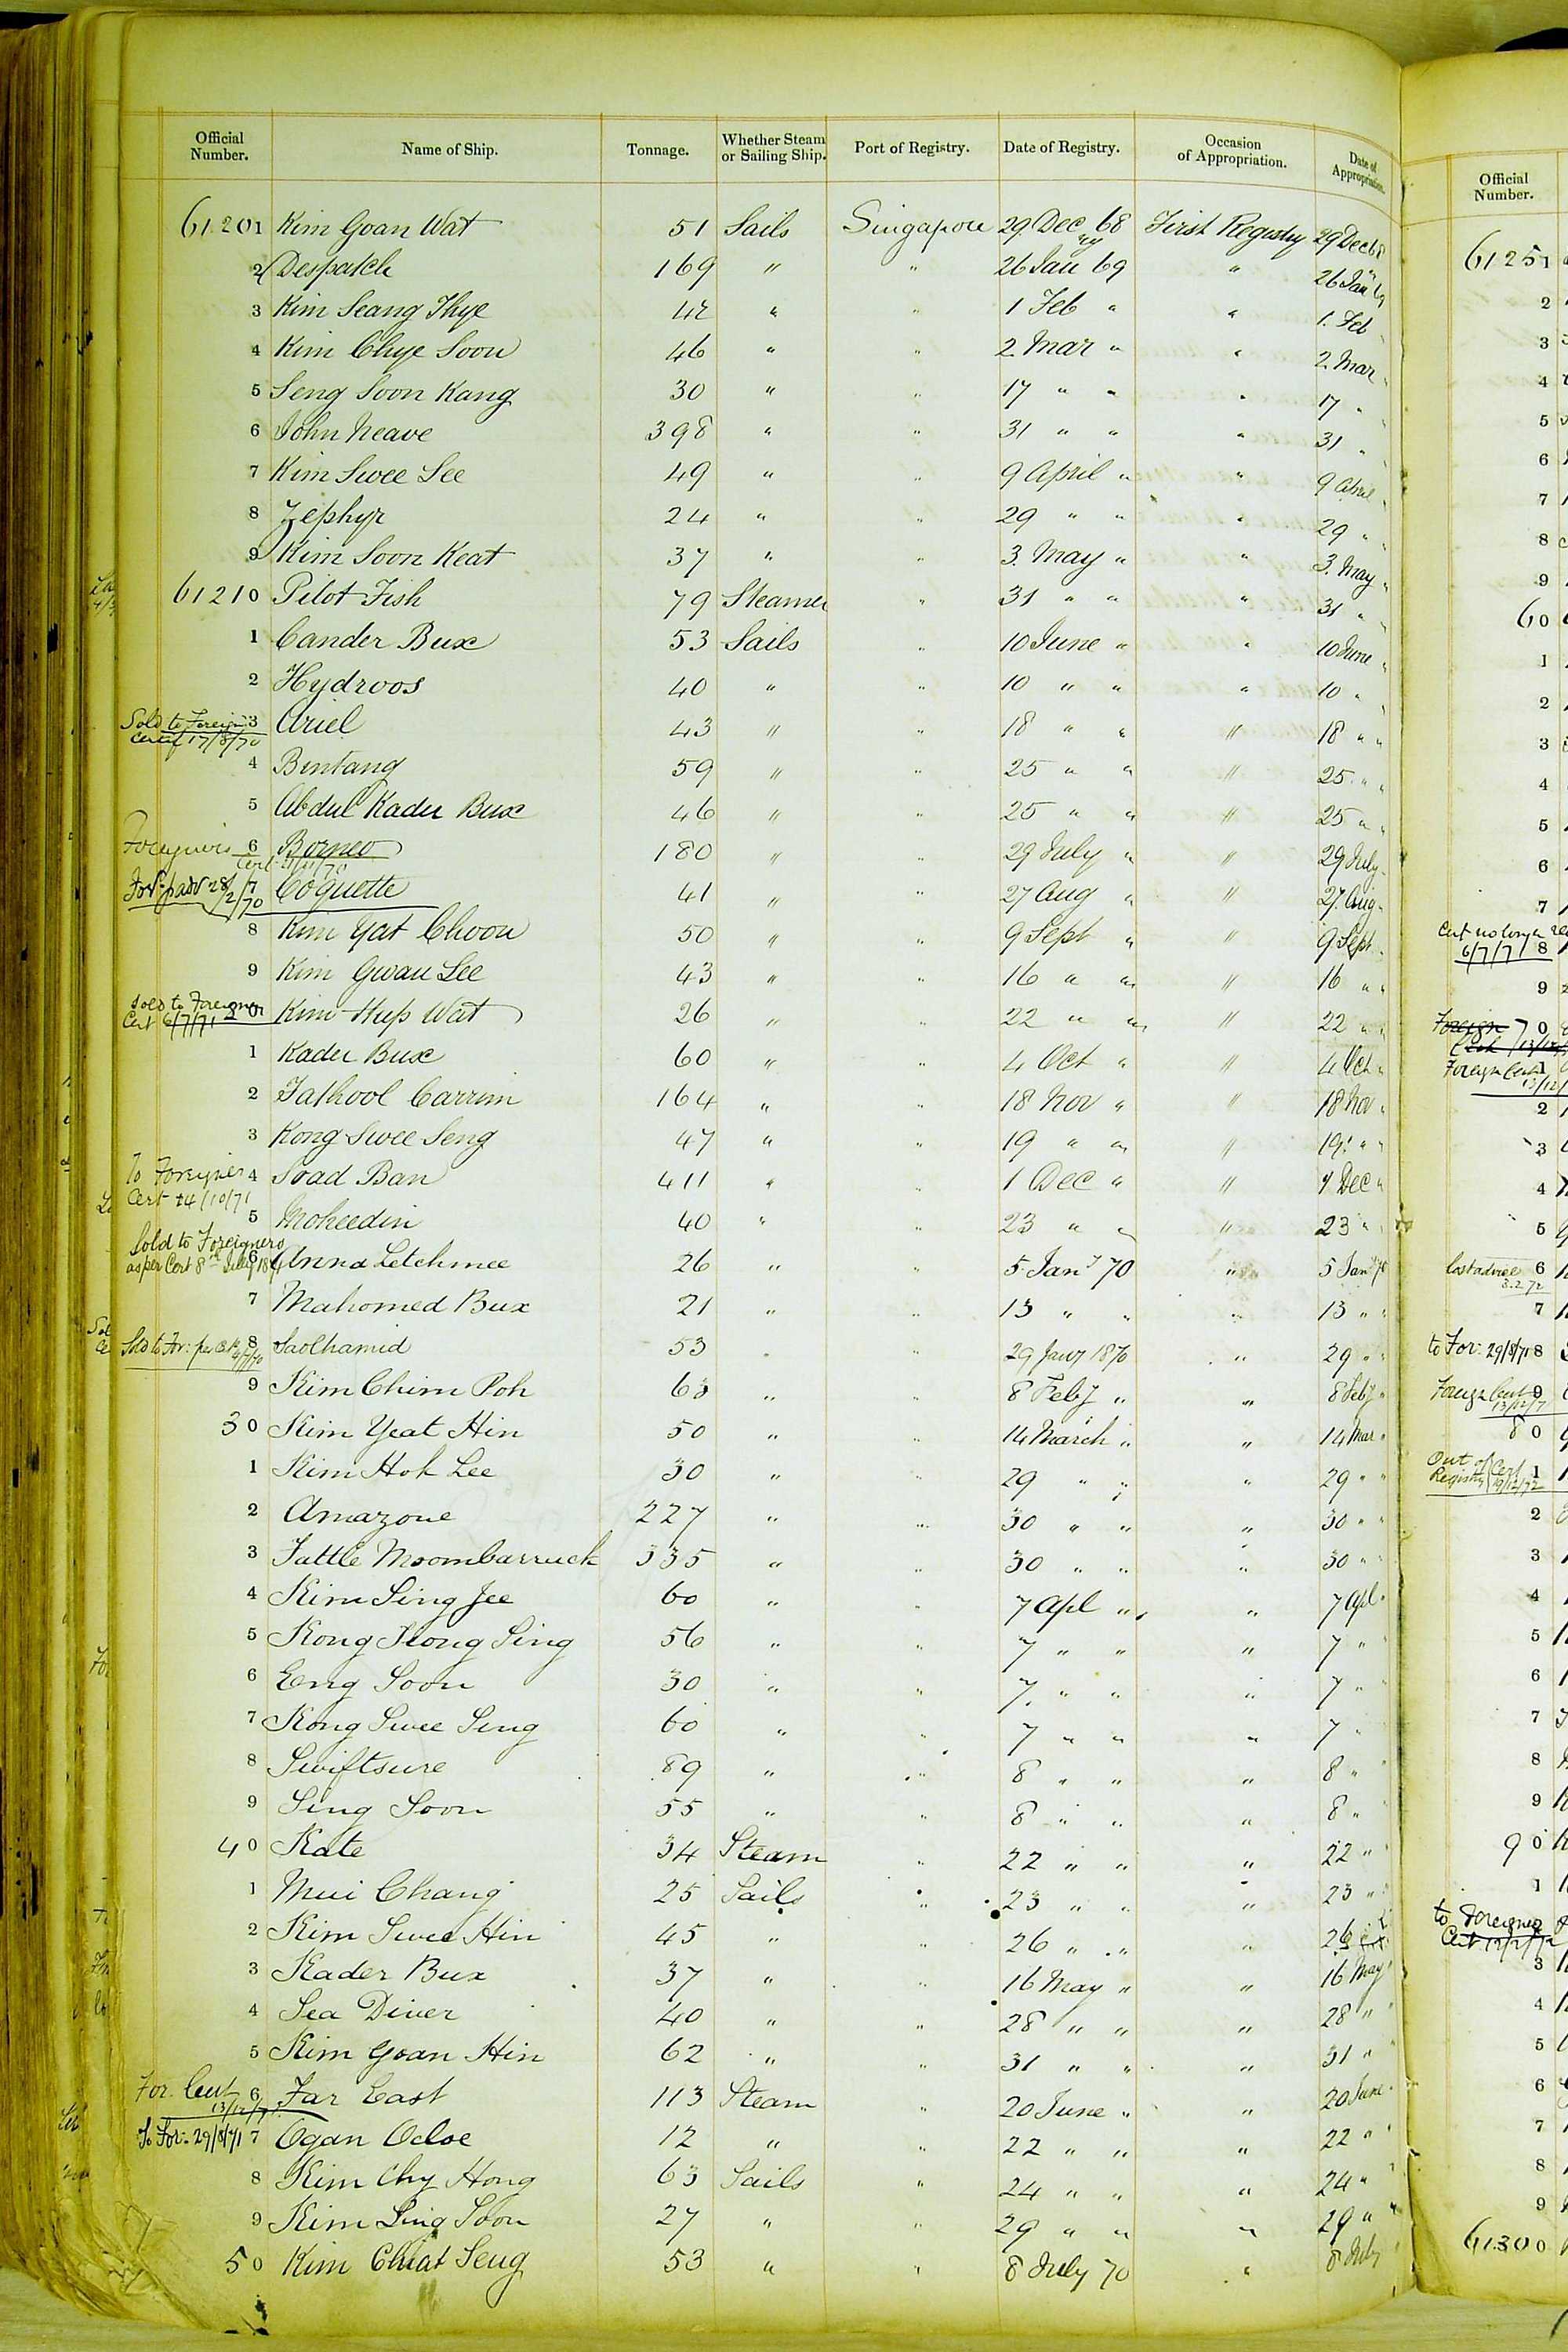 Official Number. Name of Ship. Tonnage. Whether Steam or Sailing Ship. Port of Registry. Date of Registry. Occasion of Appropriation. Date of Appropriation.
61201 Kim Goan Wat 51 Sails Singapore 29 Dec 68 First Registry 29 Dec 68
2 Despatch 169 " " 26 Jan 69 " 26 Jan 69
3 Kim Seang Thye 42 " " 1 Feb " " 1. Feb
4 Kim Chye Soon 46 " " 2 Mar " " 2 Mar "
5 Seng Soon Kang 30 " " 17 " " " 17 "
6 John Neave 398 " " 31 " " " 31 "
7 Kim Swee Lee 49 " " 9 April " " 9 April "
8 Zephyr 24 " " 29 " " " 29 " "
9 Kim Soon Keat 37 " " 3. May " " 3. May "
61210 Pilot Fish 79 Steamer " 31 " " " 31 " "
1 Cander Bux 53 Sails " 10 June " " 10 June "
2 Hydroos 40 " " 10 " " " 10 " "
Sold to Foreign Certif 17/8/70 3 Ariel 43 " " 18 " " " 18 " "
4 Bintang 59 " " 25 " " " 25 " "
5 Abdul Kader Bux 46 " " 25 " " " 25 " "
Foreigners 6 Borneo 180 " " 29 July " " 29 July "
Cert
7 Coquette 41 " " 27 Aug " " 27. Aug "
8 Kim Yat Choon 50 " " 9 Sept " " 9 Sept "
9 Kim Gwan Lee 43 " " 16 " " " 16 " "
Sold to Foreigner Cert 6/7/71 20 Kim Hup Wat 26 " " 22 " " " 22 " "
1 Kader Bux 60 " " 4 Oct " " 4 Oct "
2 Fathool Carrim 164 " " 18 Nov " " 18 Nov "
3 Kong Swee Seng 47 " " 19 " " " 19 " "
To Foreigner Cert 14/10/71 4 Soad Ban 411 " " 1 Dec " " 1 Dec "
5 Moheedin 40 " " 23 " " " 23 "
Sold to Foreigners as per Cert 8th July 1871 6 Anna Letchmee 26 " " 5 Jany 70 " 5 Jany 70
7 Mahomed Bux 21 " " 13 " " " 13 " "
Sold to For: per 8 Saolhamid 53 " " 29 Jany 1870 " 29 " "
9 Kim Chim Poh 63 " " 8 Feby " " 8 Feby "
30 Kim Yeat Hin 50 " " 14 March " " 14 Mar "
1 Kim Hok Lee 30 " " 29 " " " 29 " "
2 Amazone 227 " " 30 " " " 30 " "
3 Fattle Moombarruck 335 " " 30 " " " 30 " "
4 Kim Sing Jee 60 " " 7 Apl " " 7 Apl "
5 Kong Hong Sing 56 " " 7 " " " 7 " "
6 Eng Soon 30 " " 7. " " " 7 "
7 Kong Swee Seng 60 " " 7 " " " 7 "
8 Swiftsure 89 " " 8 " " " 8 "
9 Sing Soon 55 " " 8 " " " 8 "
40 Kate 34 Steam " 22 " " " 22 "
1 Mui Chang 25 Sails " 23 " " " 23 "
2 Kim Swee Hin 45 " " 26 " " " 26
3 Kader Bux 37 " " 16 May " " 16 May
4 Sea Diver 40 " " 28 " " " 28 "
5 Kim Goan Hin 62 " " 31 " " " 31 "
For. Cert 13/12/7 6 Far East 113 Steam " 20 June " " 20 June
To For. 29/8/71 7 Ogan Ocloe 12 " " 22 " " " 22 "
8 Kim Chy Hong 63 Sails " 24 " " " 24 "
9 Kim Ling Soon 27 " " 29 " " " 29 " "
50 Kim Chiat Seng 53 " " 8 July 70 " 8 July
Official Number.
61251
2
3
4
5
6
7
8
9
60
1
2
3
4
5
6
7
Cert no longer
6/7/71 8
9
Foreign 70
Foreign Cert 1
13/12/
2
3
4
5
Lost advice 6
3.2.72
7
to For. 29/8/71 8
Foreign Cert 9
13/12/7
80
Out of Registry Cert 19/12/72 1
2
3
4
5
6
7
8
9
90
1
to Foreigner
Cert 12/2/72
3
4
5
6
7
8
9
61300